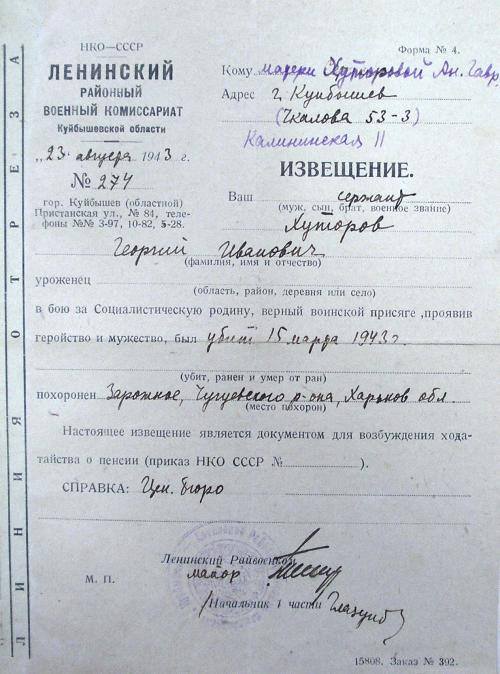 НКО—СССР
ЛЕНИНСКИЙ
РАЙОННЫЙ
ВОЕННЫЙ КОМИССАРИАТ
Куйбышевской области
„23" августа 1943 г.
№ 274
гор. Куйбышев (областной)
Пристанская ул., № 84, теле-
фоны №№ 3-97, 10-82, 5-28.
Форма № 4.
Кому матери Хуторовой Ан. Гавр.
Адрес г. Куйбышев
(Чкалова 53-3)
Калининская 11
ИЗВЕЩЕНИЕ.
Ваш сержант
(муж, сын, брат, военное звание)
Хуторов
Георгий Иванович
(фамилия, имя и отчество)
уроженец
(область, район, деревня или село)
в бою за Социалистическую родину, верный воинской присяге ,проявив
геройство и мужество, был убит 15 марта 1943 г.
(убит, ранен и умер от ран)
похоронен Зарожное, Чугуевского р-она, Харьков обл.
(место похорон)
Настоящее извещение является документом для возбуждения хода-
тайства о пенсии (приказ НКО СССР № ).
СПРАВКА: Цен. бюро
Ленинский Райвоенком
майор
М. П.
Начальник 1 части
15808. Заказ № 392.
ЛИНИЯ ОТРЕЗА